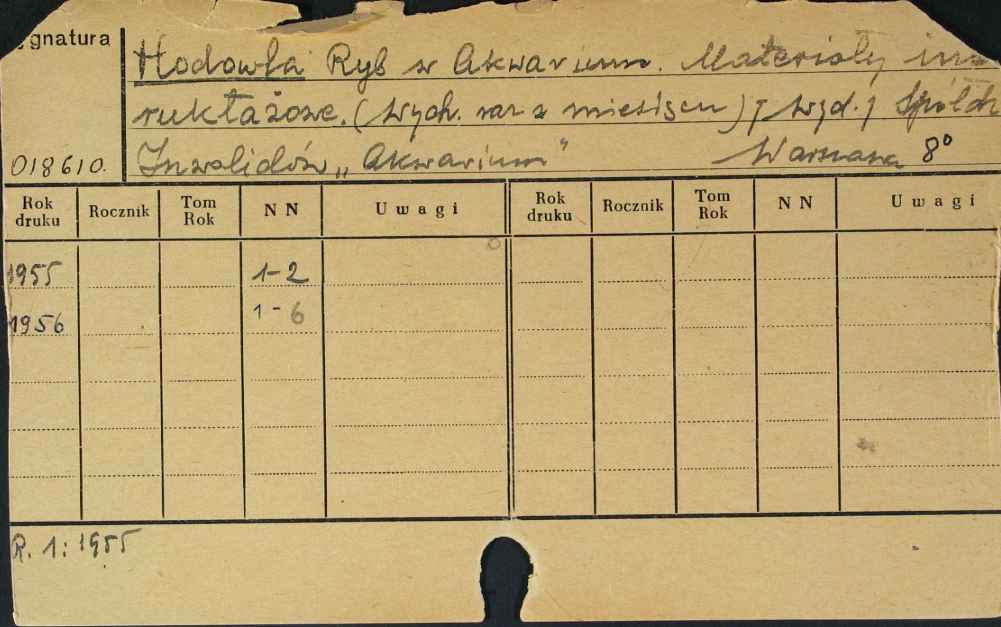 ygnatura
Hodowla Ryb w Akwarium. Materiały ins
ruktażowe. (Wych. raz z miesiącu) [wyd.]
Inwalidów „Akwarium" Warszawa 8°
018610.
Rok druku Rocznik Tom Rok NN Uwagi Rok druku Rocznik Tom Rok NN Uwagi
1955 1-2
1956 1-6
R. 1: 1955